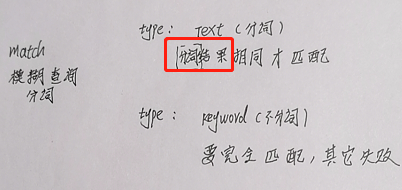 match
模糊查询
分词
type: Text(分词)
分词结果相同才匹配
type: keyword(不分词)
要完全匹配,其它失败